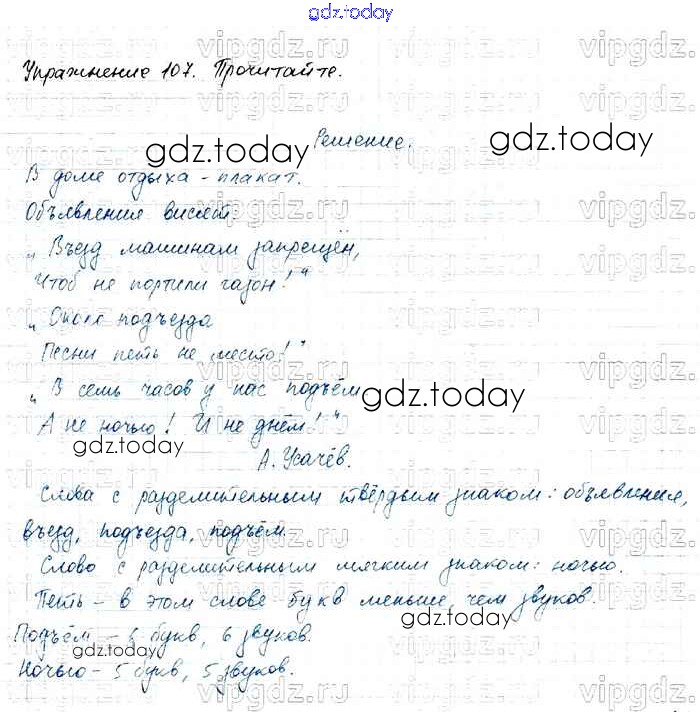 gdz.today
Упражнение 107. Прочитайте.
Решение.
В доме отдыха - плакат.
Объявления висят:
„Въезд машинам запрещён,
Чтоб не портили газон!“
„Около подъезда
Песни петь не место!“
„В семь часов у нас подъём
А не ночью! И не днём!“
А. Усачёв.
Слова с разделительным твёрдым знаком: объявления,
въезд, подъезда, подъём.
Слово с разделительным мягким знаком: ночью.
Петь - в этом слове букв меньше, чем звуков.
Подъём - букв, 6 звуков.
Ночью - 5 букв, 5 звуков.